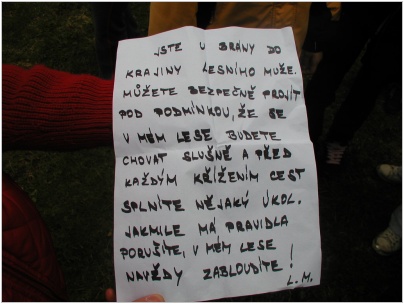 JSTE U BRÁNY DO
KRAJINY LESNÍHO MUŽE.
MŮŽETE BEZPEČNĚ PROJÍT
POD PODMÍNKOU, ŽE SE
V MÉM LESE BUDETE
CHOVAT SLUŠNĚ A PŘED
KAŽDÝM KŘÍŽENÍM CEST
SPLNÍTE NĚJAKÝ ÚKOL.
JAKMILE MÁ PRAVIDLA
PORUŠÍTE, V MÉM LESE
NAVĚDY ZABLOUDÍTE!
L.M.